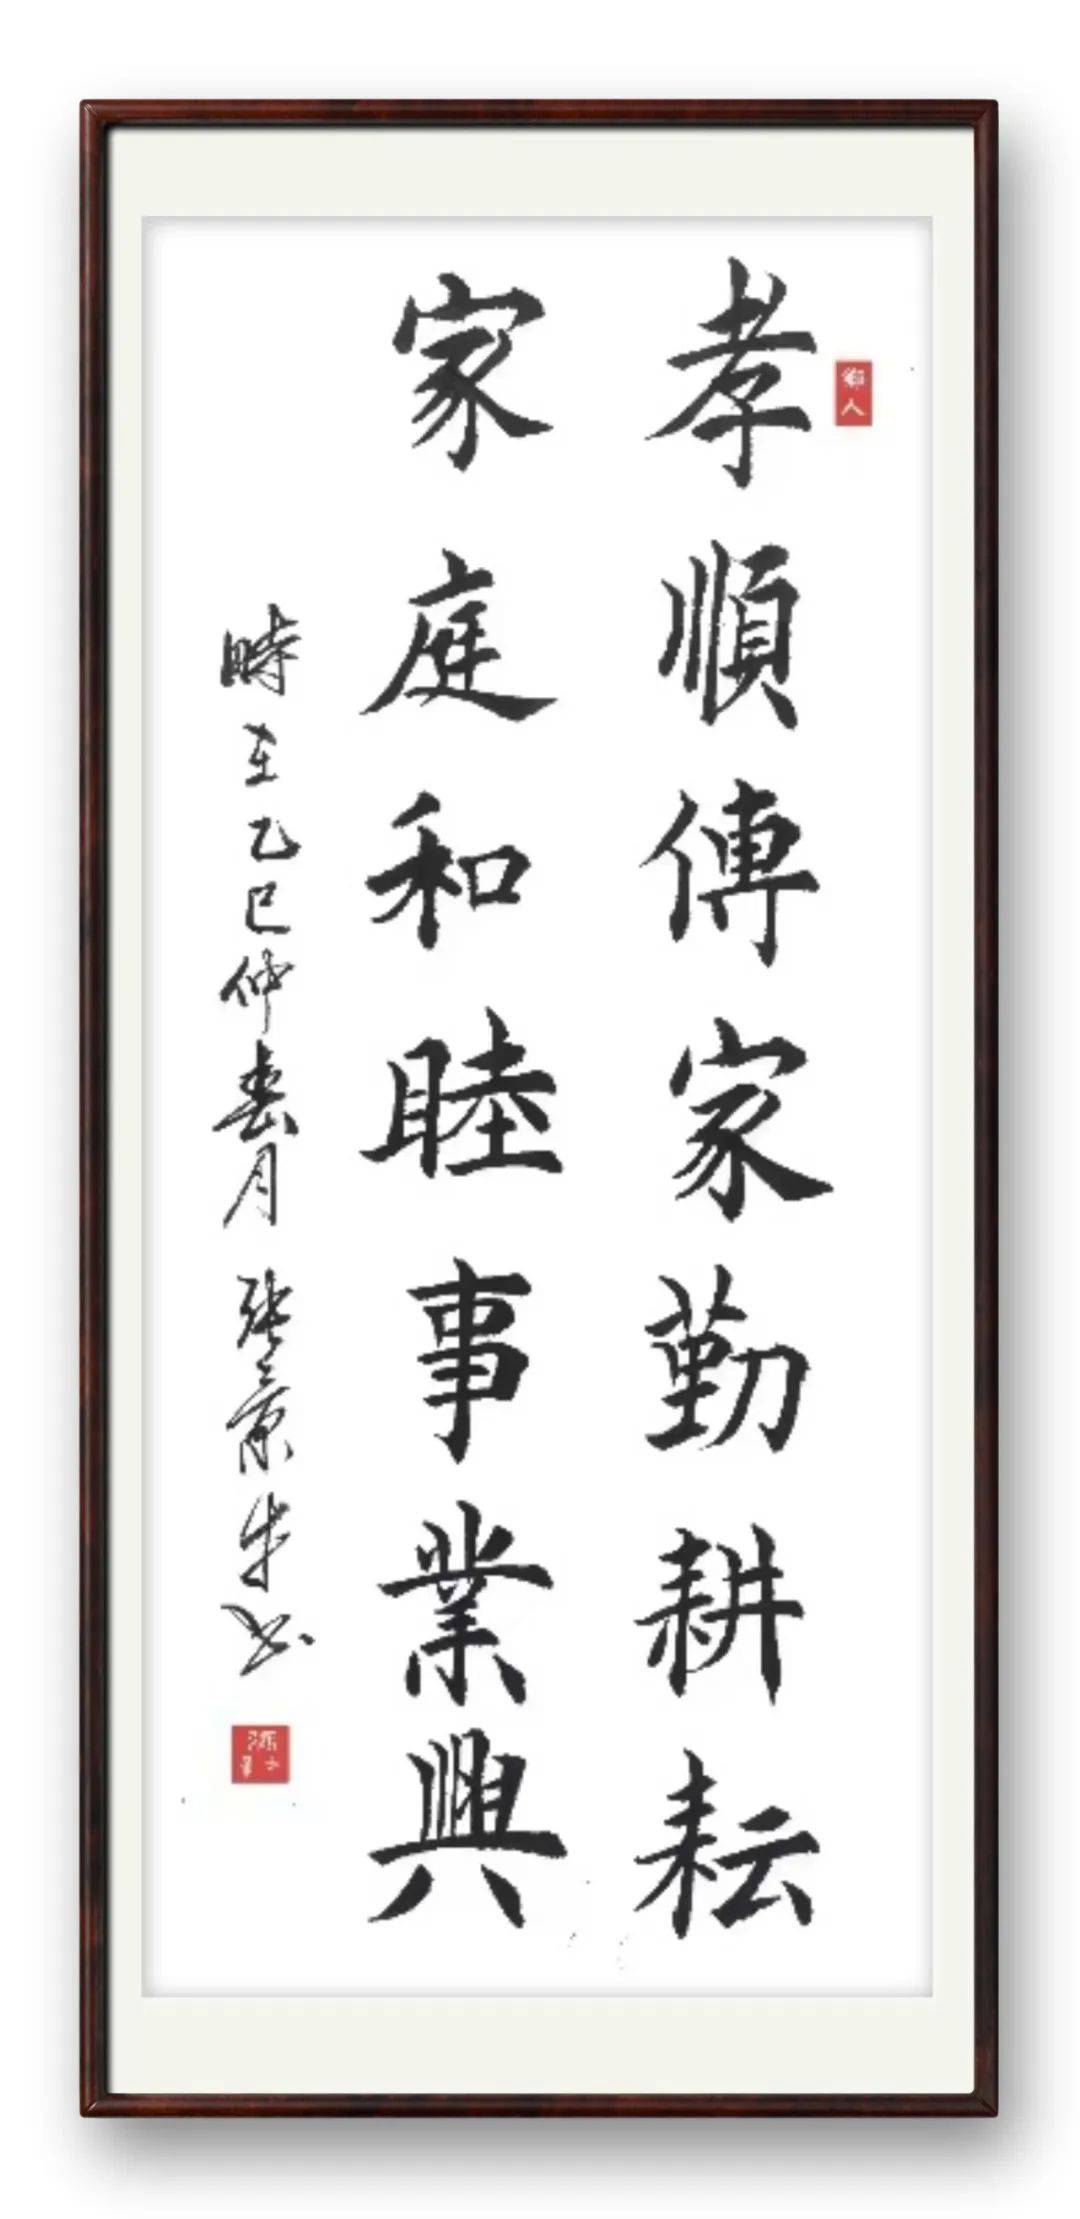 孝順傳家勤耕耘
家庭和睦事業興
時在乙巳仲春月 張景生書